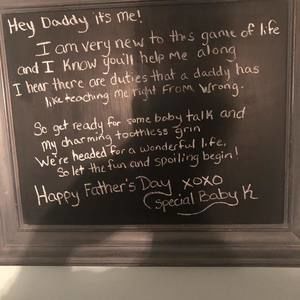 Hey Daddy its me!
I am very new to this game of life
and I know you'll help me along
I hear there are duties that a daddy has
like teaching me right from wrong.
So get ready for some baby talk and
my charming toothless grin
We're headed for a wonderful life,
So let the fun and spoiling begin!
Happy Father's Day XOXO
Special Baby K